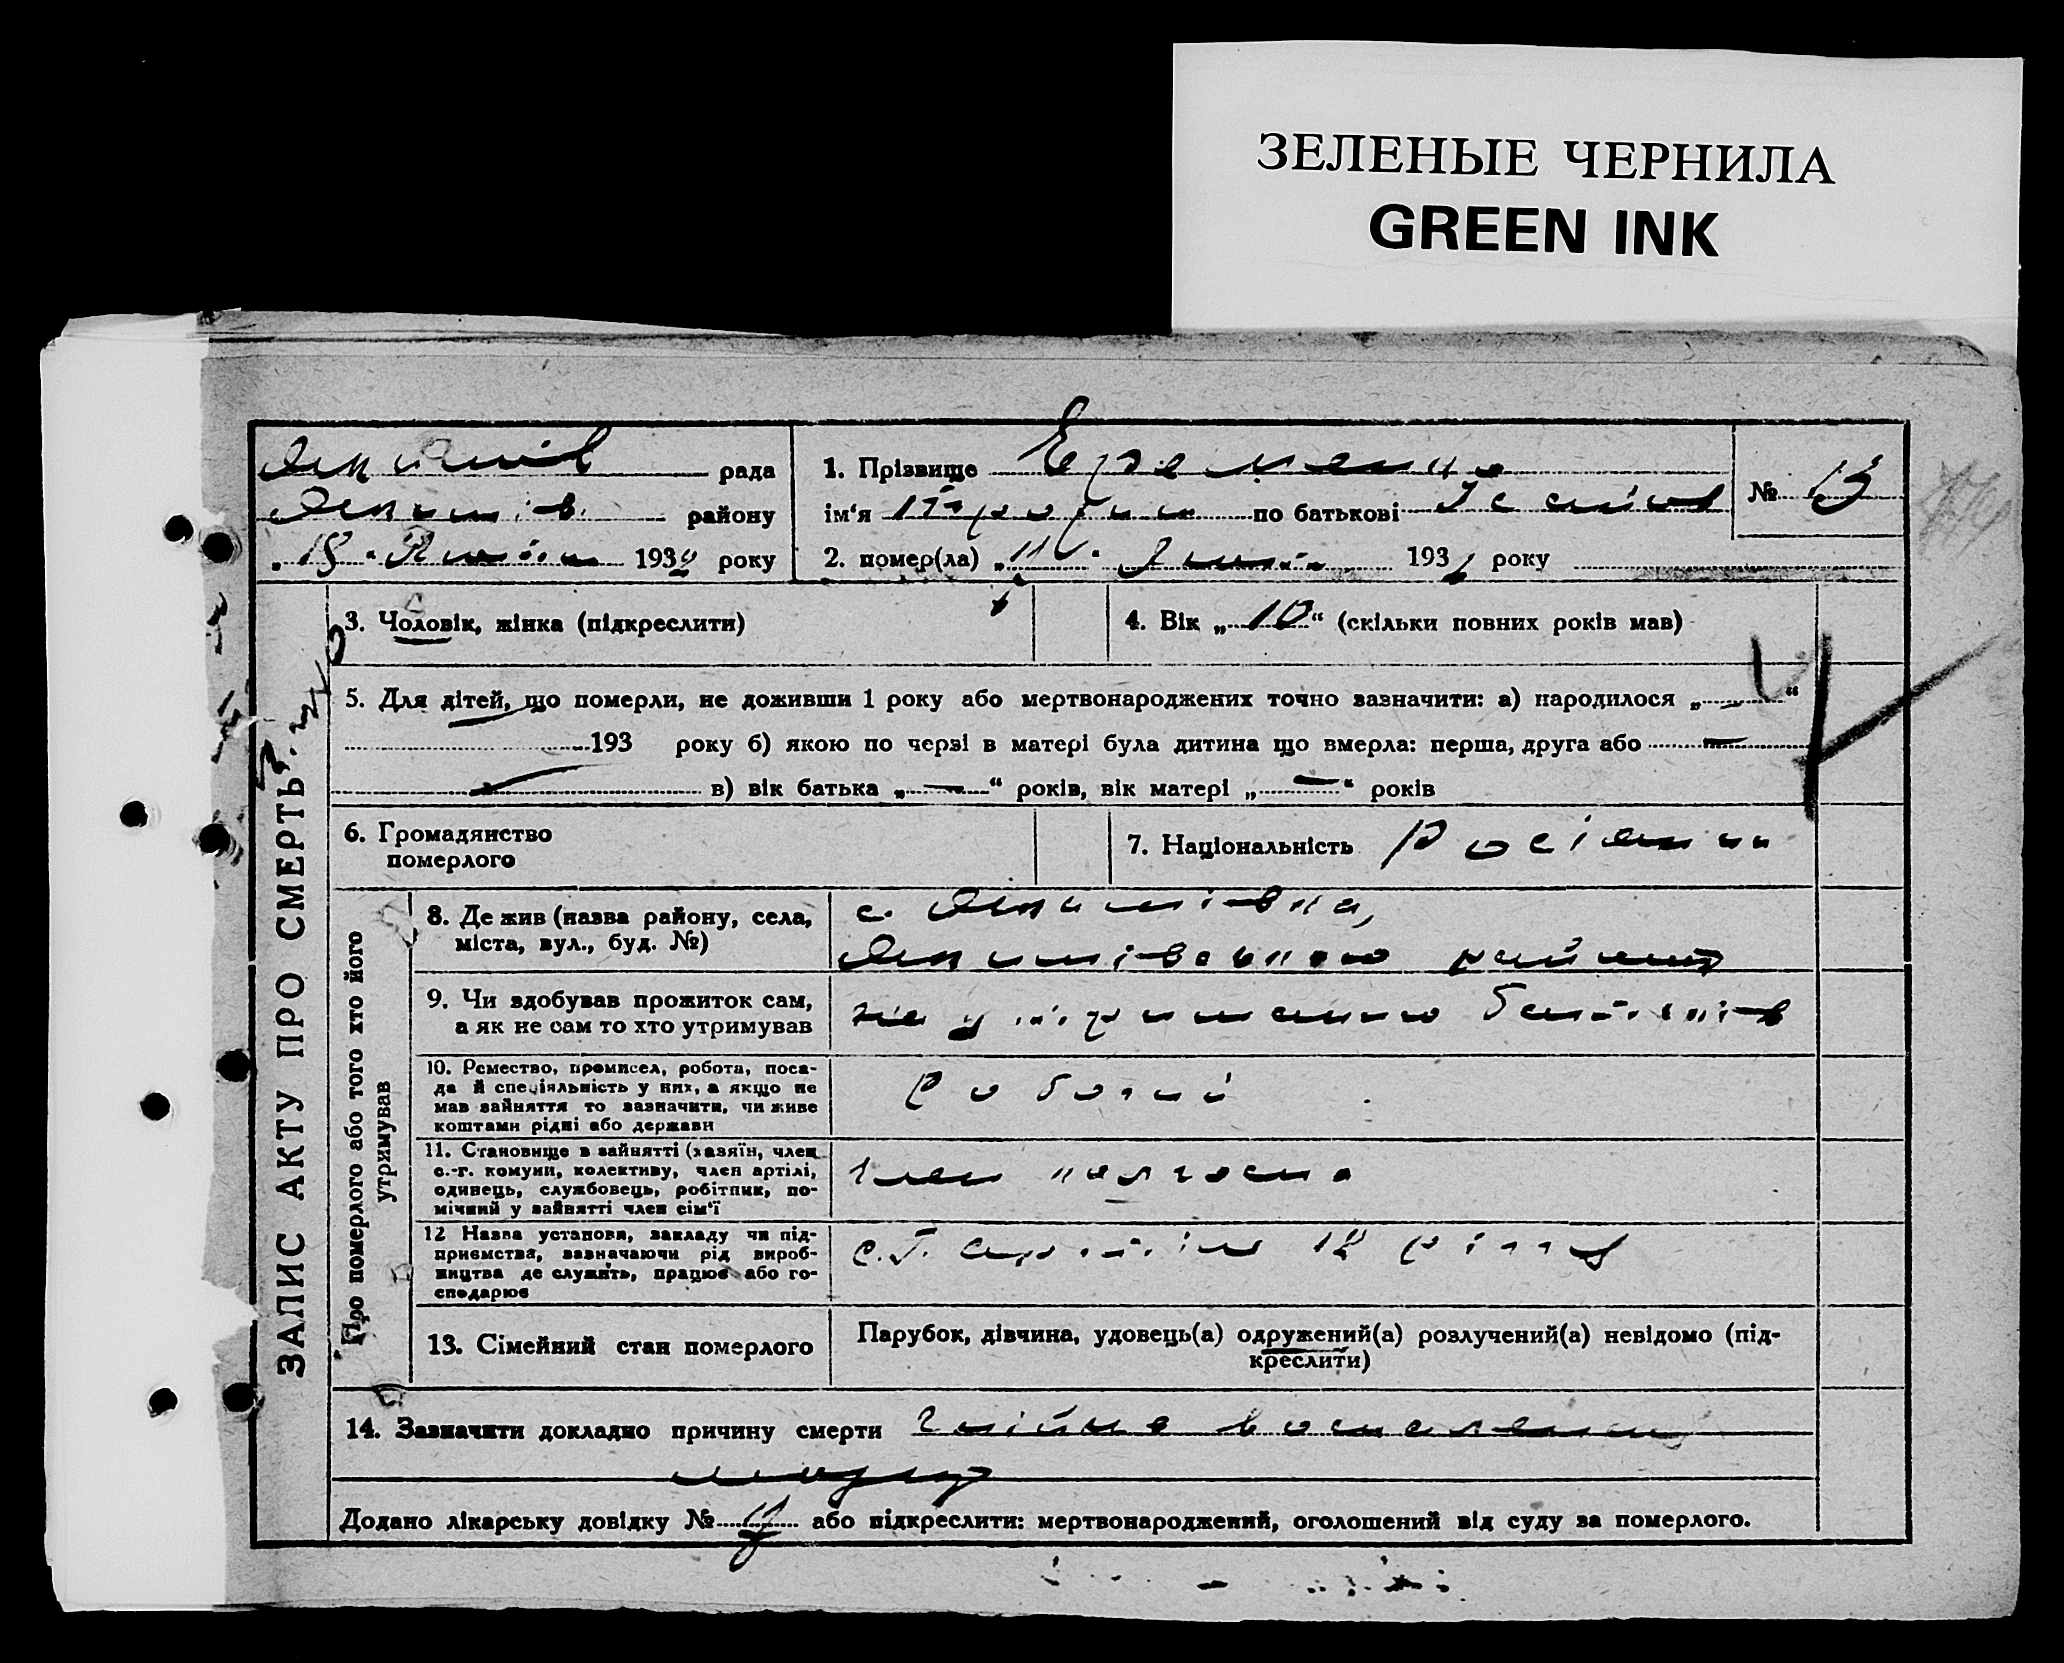 ЗЕЛЕНЫЕ ЧЕРНИЛА
GREEN INK
рада
району
193 року
1. Прізвище Єременко
ім'я по батькові
2. помер(ла) „ 193 року
№ 13
ЗАПИС АКТУ ПРО СМЕРТЬ
3. Чоловік, жінка (підкреслити)
4. Вік „10“ (скільки повних років мав)
5. Для дітей, що померли, не доживши 1 року або мертвонароджених точно зазначити: а) народилося „ — “
193 року б) якою по черзі в матері була дитина що вмерла: перша, друга або —
в) вік батька „ — “ років, вік матері „ — “ років
6. Громадянство
померлого
7. Національність Росіянин
Про померлого або того хто його
утримував
8. Де жив (назва району, села,
міста, вул., буд. №)
с. Якимівка,
Якимівського району
9. Чи здобував прожиток сам,
а як не сам то хто утримував
на утриманню батьків
10. Ремество, промисел, робота, поса-
да й спеціяльність у них, а якщо не
мав зайняття то зазначити, чи живе
коштами рідні або держави
Робочий
11. Становище в зайнятті (хазяїн, член
с.-г. комуни, колективу, член артілі,
одинець, службовець, робітник, по-
мічний у зайнятті член сім'ї
член колгоспа
12 Назва установи, закладу чи під-
приємства, зазначаючи рід вироб-
ництва де служить, працює або го-
сподарює
с.г. артіль
13. Сімейний стан померлого
Парубок, дівчина, удовець(а) одружений(а) розлучений(а) невідомо (під-
креслити)
14. Зазначити докладно причину смерти
Додано лікарську довідку № або підкреслити: мертвонароджений, оголошений від суду за померлого.